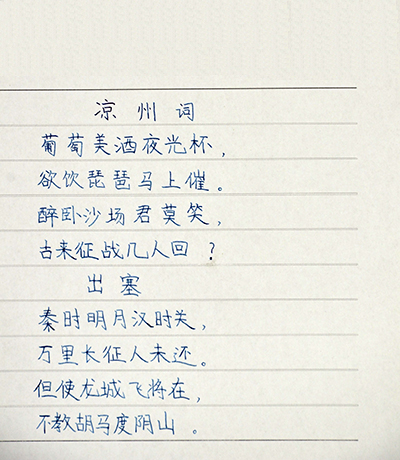 凉州词
葡萄美酒夜光杯，
欲饮琵琶马上催。
醉卧沙场君莫笑，
古来征战几人回？
出塞
秦时明月汉时关，
万里长征人未还。
但使龙城飞将在，
不教胡马度阴山。